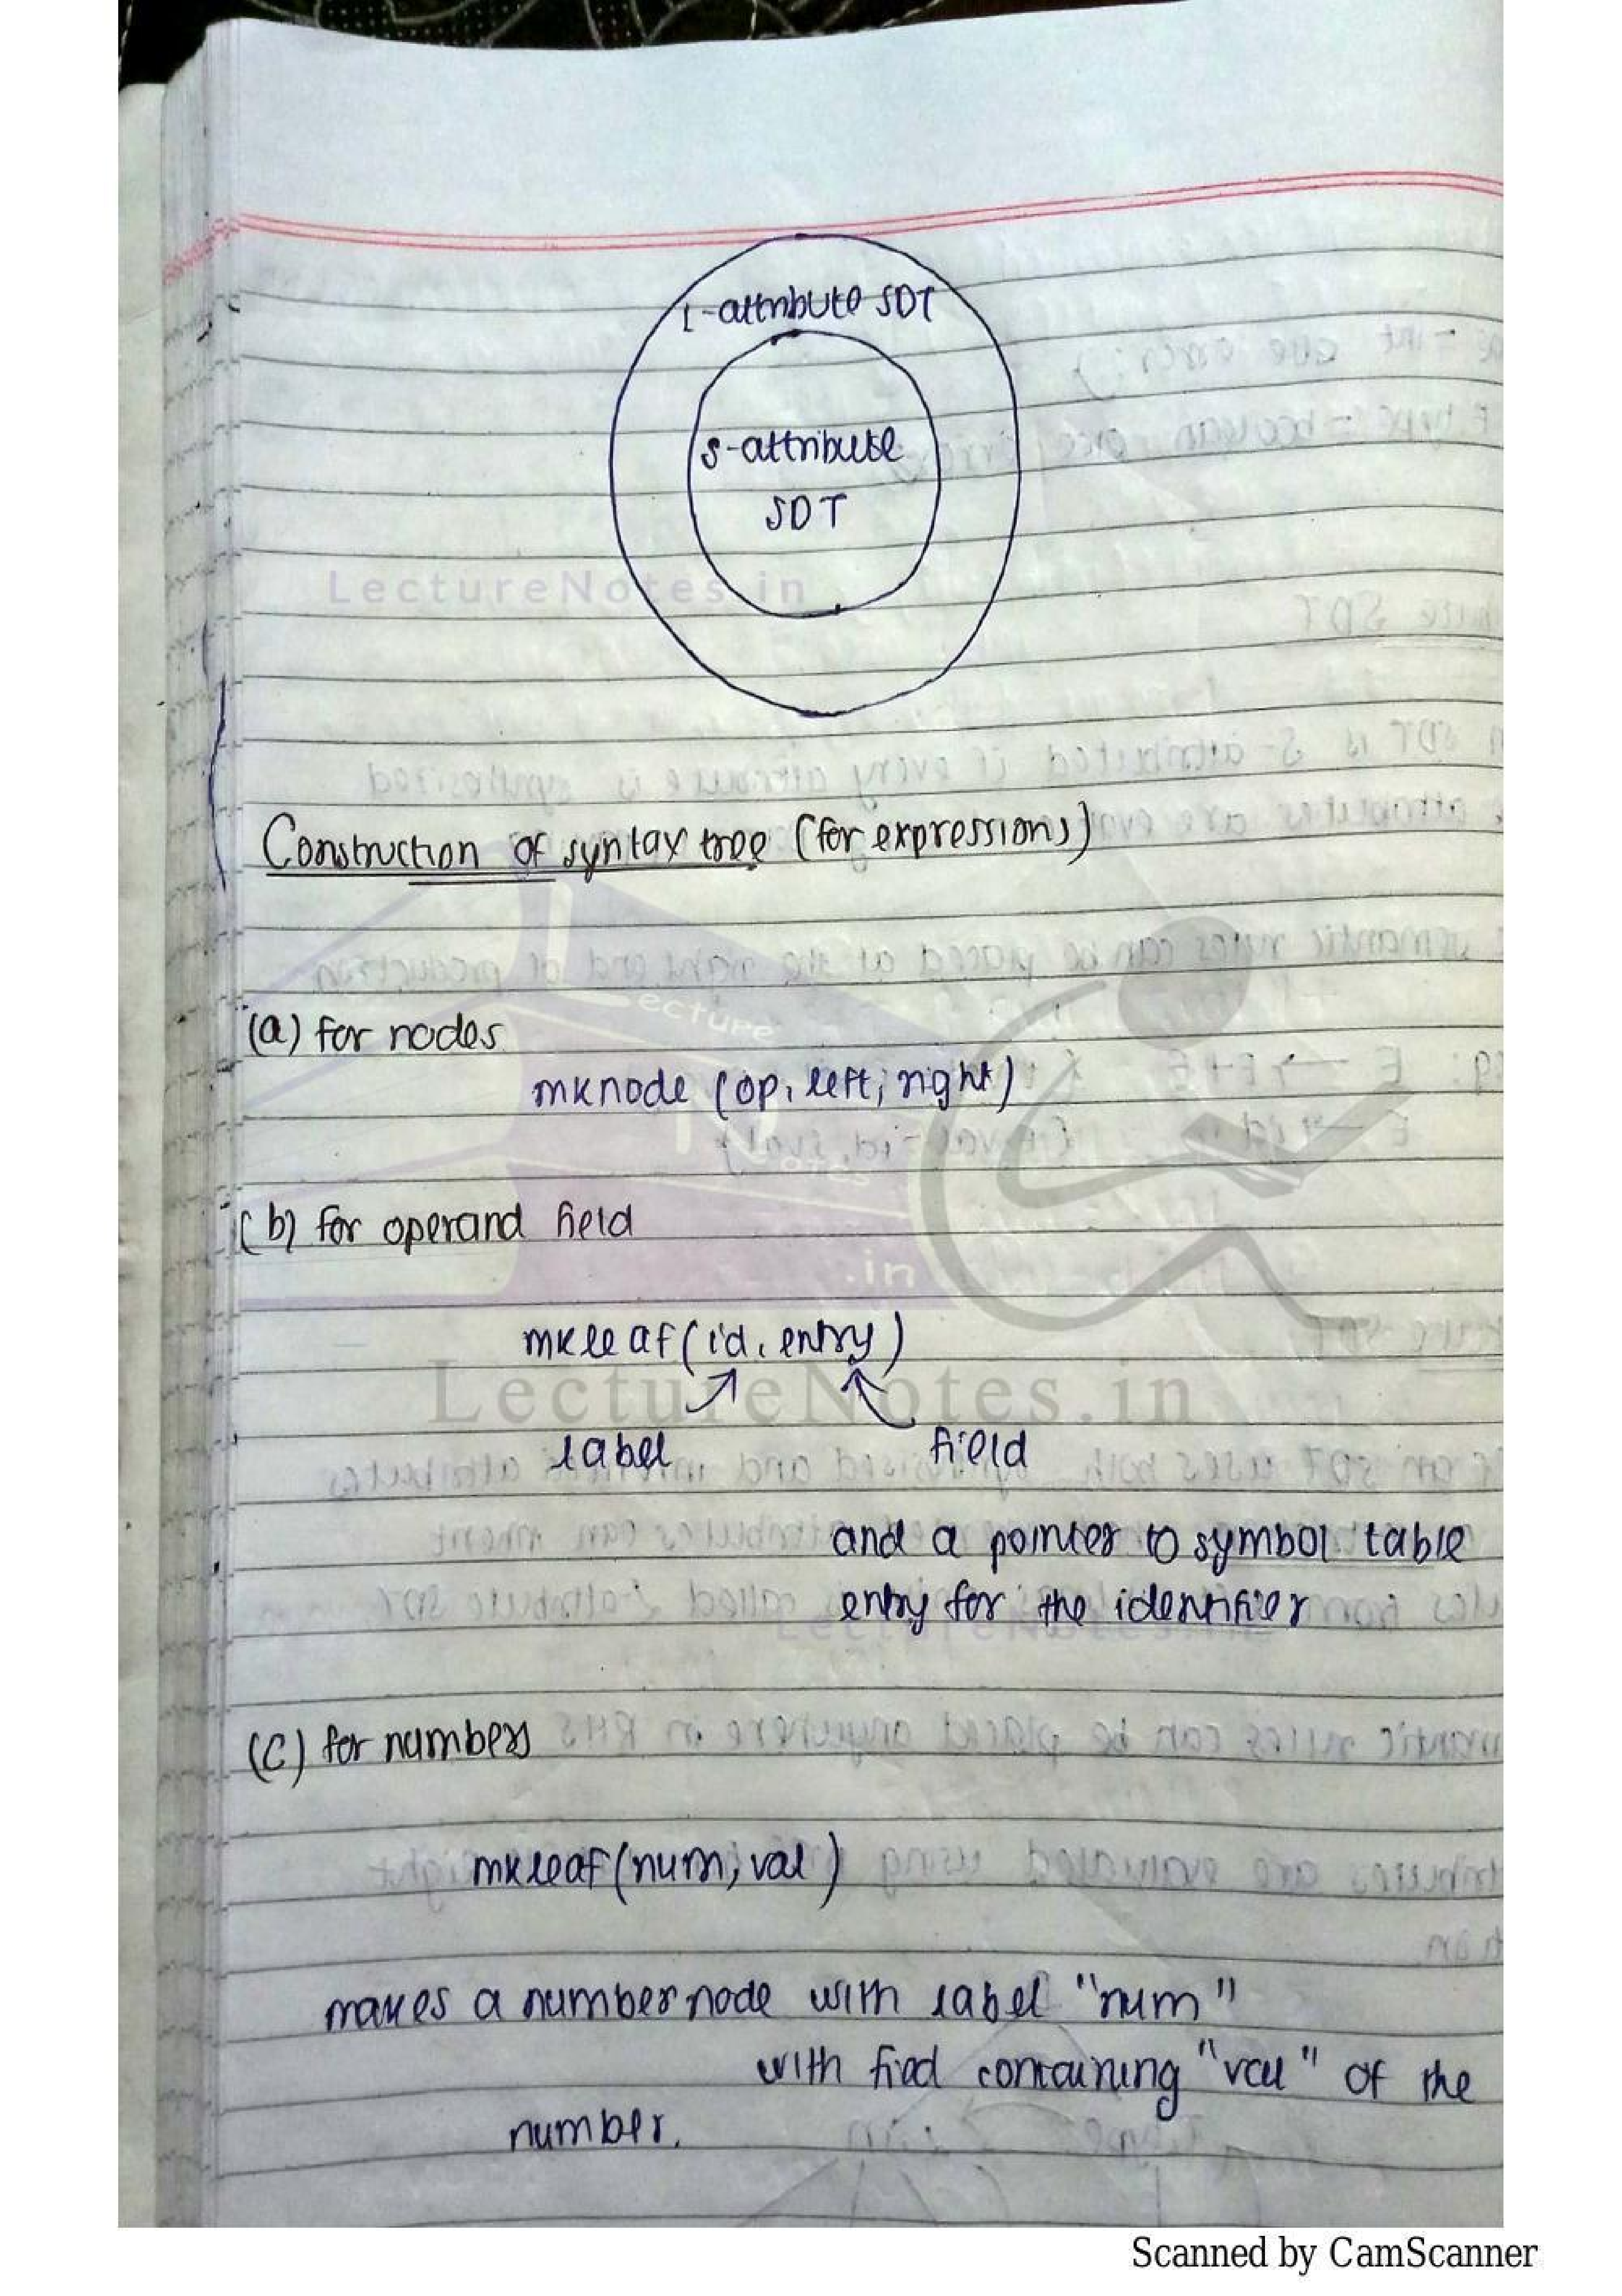 L-attribute SDT
S-attribute
SDT
LectureNotes.in
Construction of syntax tree (for expressions)
(a) for nodes
mknode (op, left, right)
(b) for operand field
mkleaf (id, entry)
label field
and a pointer to symbol table
entry for the identifier
(c) for numbers
mkleaf (num, val)
makes a number node with label "num"
with field containing "val" of the
number.
Lecture
Notes
.in
LectureNotes.in
LectureNotes.in
Scanned by CamScanner